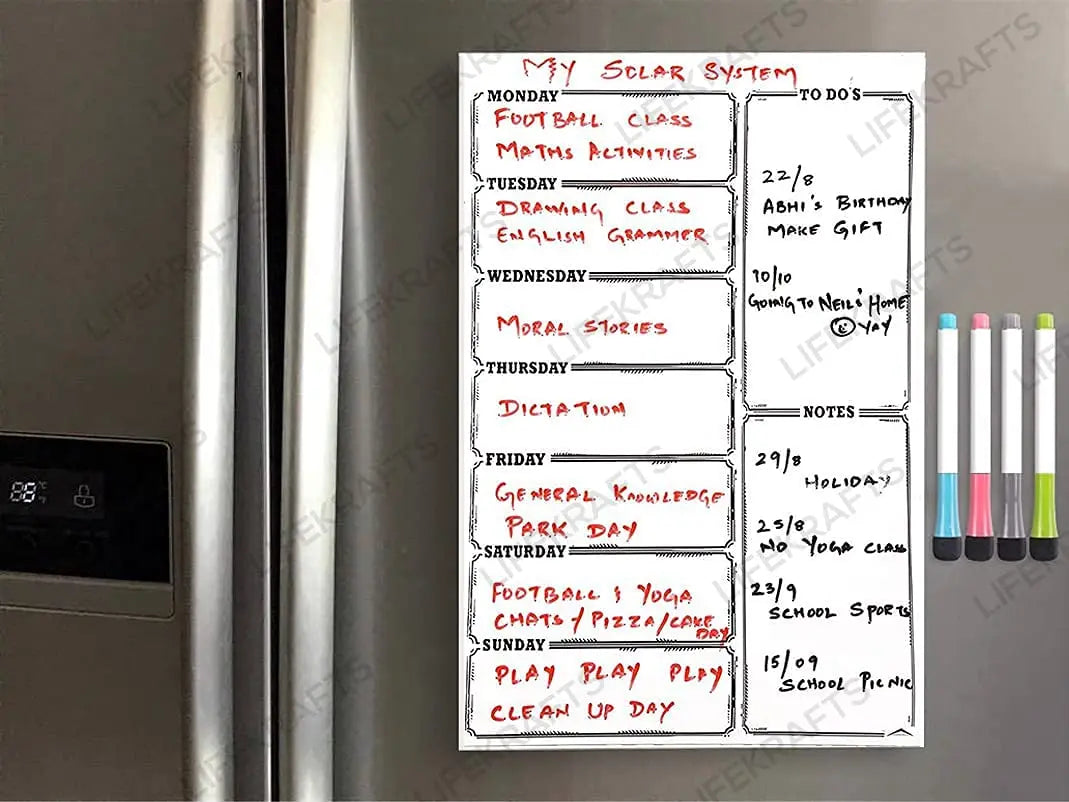 MY SOLAR SYSTEM
MONDAY
FOOTBALL CLASS
MATHS ACTIVITIES
TUESDAY
DRAWING CLASS
ENGLISH GRAMMER
WEDNESDAY
MORAL STORIES
THURSDAY
DICTATION
FRIDAY
GENERAL KNOWLEDGE
PARK DAY
SATURDAY
FOOTBALL & YOGA
CHATS / PIZZA / CAKE
DAY
SUNDAY
PLAY PLAY PLAY
CLEAN UP DAY
TO DO'S
22/8
ABHI'S BIRTHDAY
MAKE GIFT
10/10
GOING TO NEIL'S HOME
YAY
NOTES
29/8
HOLIDAY
25/8
NO YOGA CLASS
23/9
SCHOOL SPORTS
15/09
SCHOOL PICNIC
88
LIFEKRAFTS